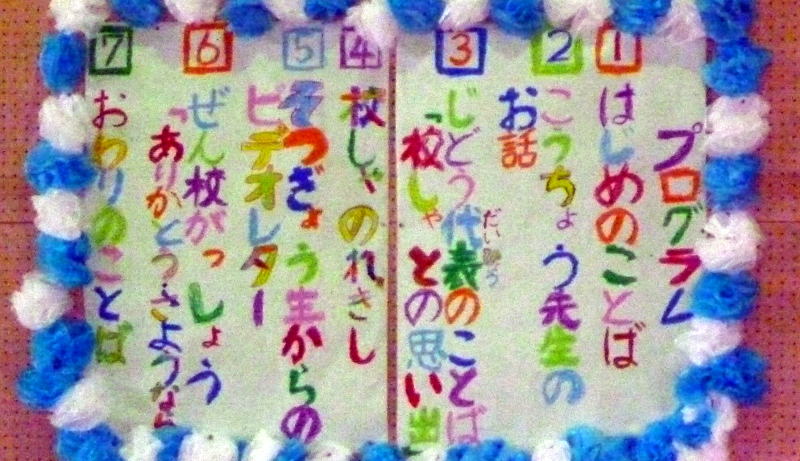 プログラム
1 はじめのことば
2 こうちょう先生の
お話
3 じどう代表のことば
だいひょう
「校しゃとの思い出
4 校しゃのれきし
5 そつぎょう生からの
ビデオレター
6 ぜん校がっしょう
「ありがとうさようなら
7 おわりのことば